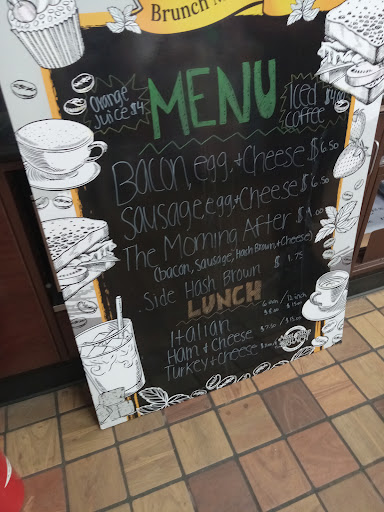 Brunch M
MENU
Orange
Juice $4
Iced $4
coffee
Bacon, egg, + Cheese $6.50
Sausage, egg, + Cheese $6.50
The Morning After $9.00
(bacon, sausage, Hash Brown, + Cheese)
Side Hash Brown $1.75
LUNCH
6 inch / 12 inch
Italian $8.00
Ham + Cheese $7.50 /
Turkey + Cheese